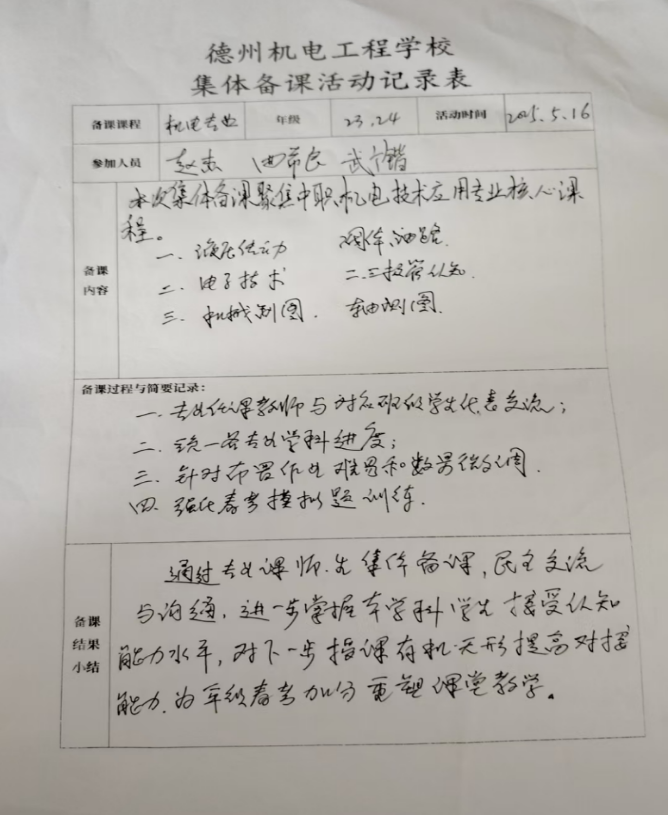 德州机电工程学校
集体备课活动记录表
备课课程 机电专业 年级 23,24 活动时间 2025.5.16
参加人员 赵杰 武
本次集体备课聚集中职机电技术应用专业核心课
程。
备课内容
一、液压传动 阀体、油路.
二、电子技术 二.三极管认知.
三、机械制图. 轴测图.
备课过程与简要记录:
一、专业任课教师与对各班级学生代表交流;
二、统一各专业学科进度;
三、针对布置作业难易和数量
四、强化春考模拟题训练.
备课结果小结
通过专业课师.生集体备课,民主交流
与沟通,进一步掌握本学科学生接受认知
能力水平,对下一步授课有机.无形提高对接
能力.为年级春考加分重塑课堂教学。